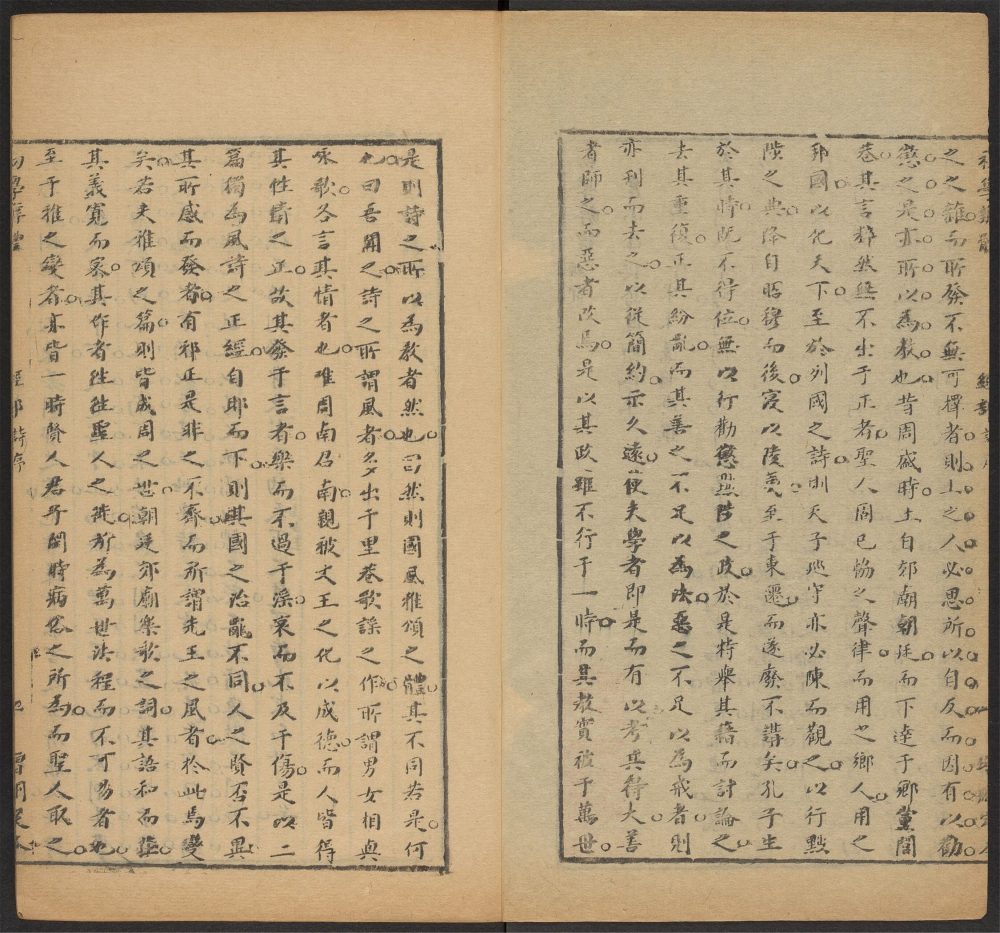 之之雜而所發不無可擇者則上之人必思所以自反而因有以勸
懲之是亦所以為教也昔周盛時上自郊廟朝廷而下達于鄉黨閭
巷其言粹然無不出于正者聖人固已協之聲律而用之鄉人用之
邦國以化天下至於列國之詩則天子巡守亦必陳而觀之以行黜
陟之典降自昭穆而後寖以陵夷至于東遷而遂廢不講矣孔子生
於其時既不得位無以行勸懲黜陟之政於是特舉其籍而討論之
去其重復正其紛亂而其善之不足以為法惡之不足以為戒者則
亦刊而去之以從簡約示久遠使夫學者即是而有以考其得失善
者師之而惡者改焉是以其政雖不行于一時而其教實被于萬世
是則詩之所以為教者然也曰然則國風雅頌之體其不同若是何
也曰吾聞之詩之所謂風者多出于里巷歌謠之作所謂男女相與
永歌各言其情者也唯周南召南親被文王之化以成德而人皆得
其性情之正故其發于言者樂而不過于淫哀而不及于傷是以二
篇獨為風詩之正經自邶而下則其國之治亂不同人之賢否不異
其所感而發者有邪正是非之不齊而所謂先王之風者於此焉變
矣若夫雅頌之篇則皆成周之世朝廷郊廟樂歌之詞其語和而莊
其義寬而密其作者往往聖人之徒所為萬世法程而不可易者也
至于雅之變者亦皆一時賢人君子閔時病俗之所為而聖人取之